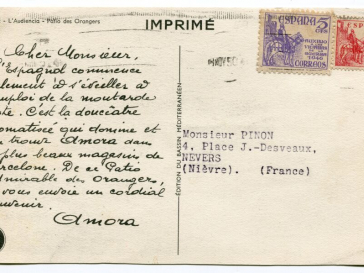 L'Audiencia - Patio des Orangers
IMPRIMÉ
ESPAÑA 5
CTS
CORREOS
ESP
Cher Monsieur,
Espagnol commence
lement à s'éveiller à
mploi de la moutarde
te. C'est la douceâtre
omatisée qui domine et
trouve Amora dans
plus beaux magasins de
arcelone. De ce Patio
dmirable des Orangers,
vous envoie un cordial
uvenir.
Amora
ÉDITION DU BASSIN MÉDITERRANÉEN
Monsieur PINON
4, Place J.-Desveaux,
NEVERS
(Nièvre). (France)